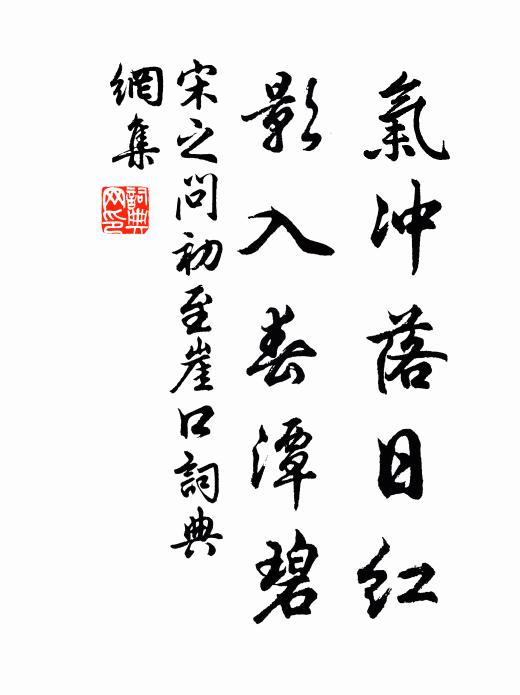 氣冲落日紅
影入春潭碧
宋之問初至崖口詞典
網集
詞典網印